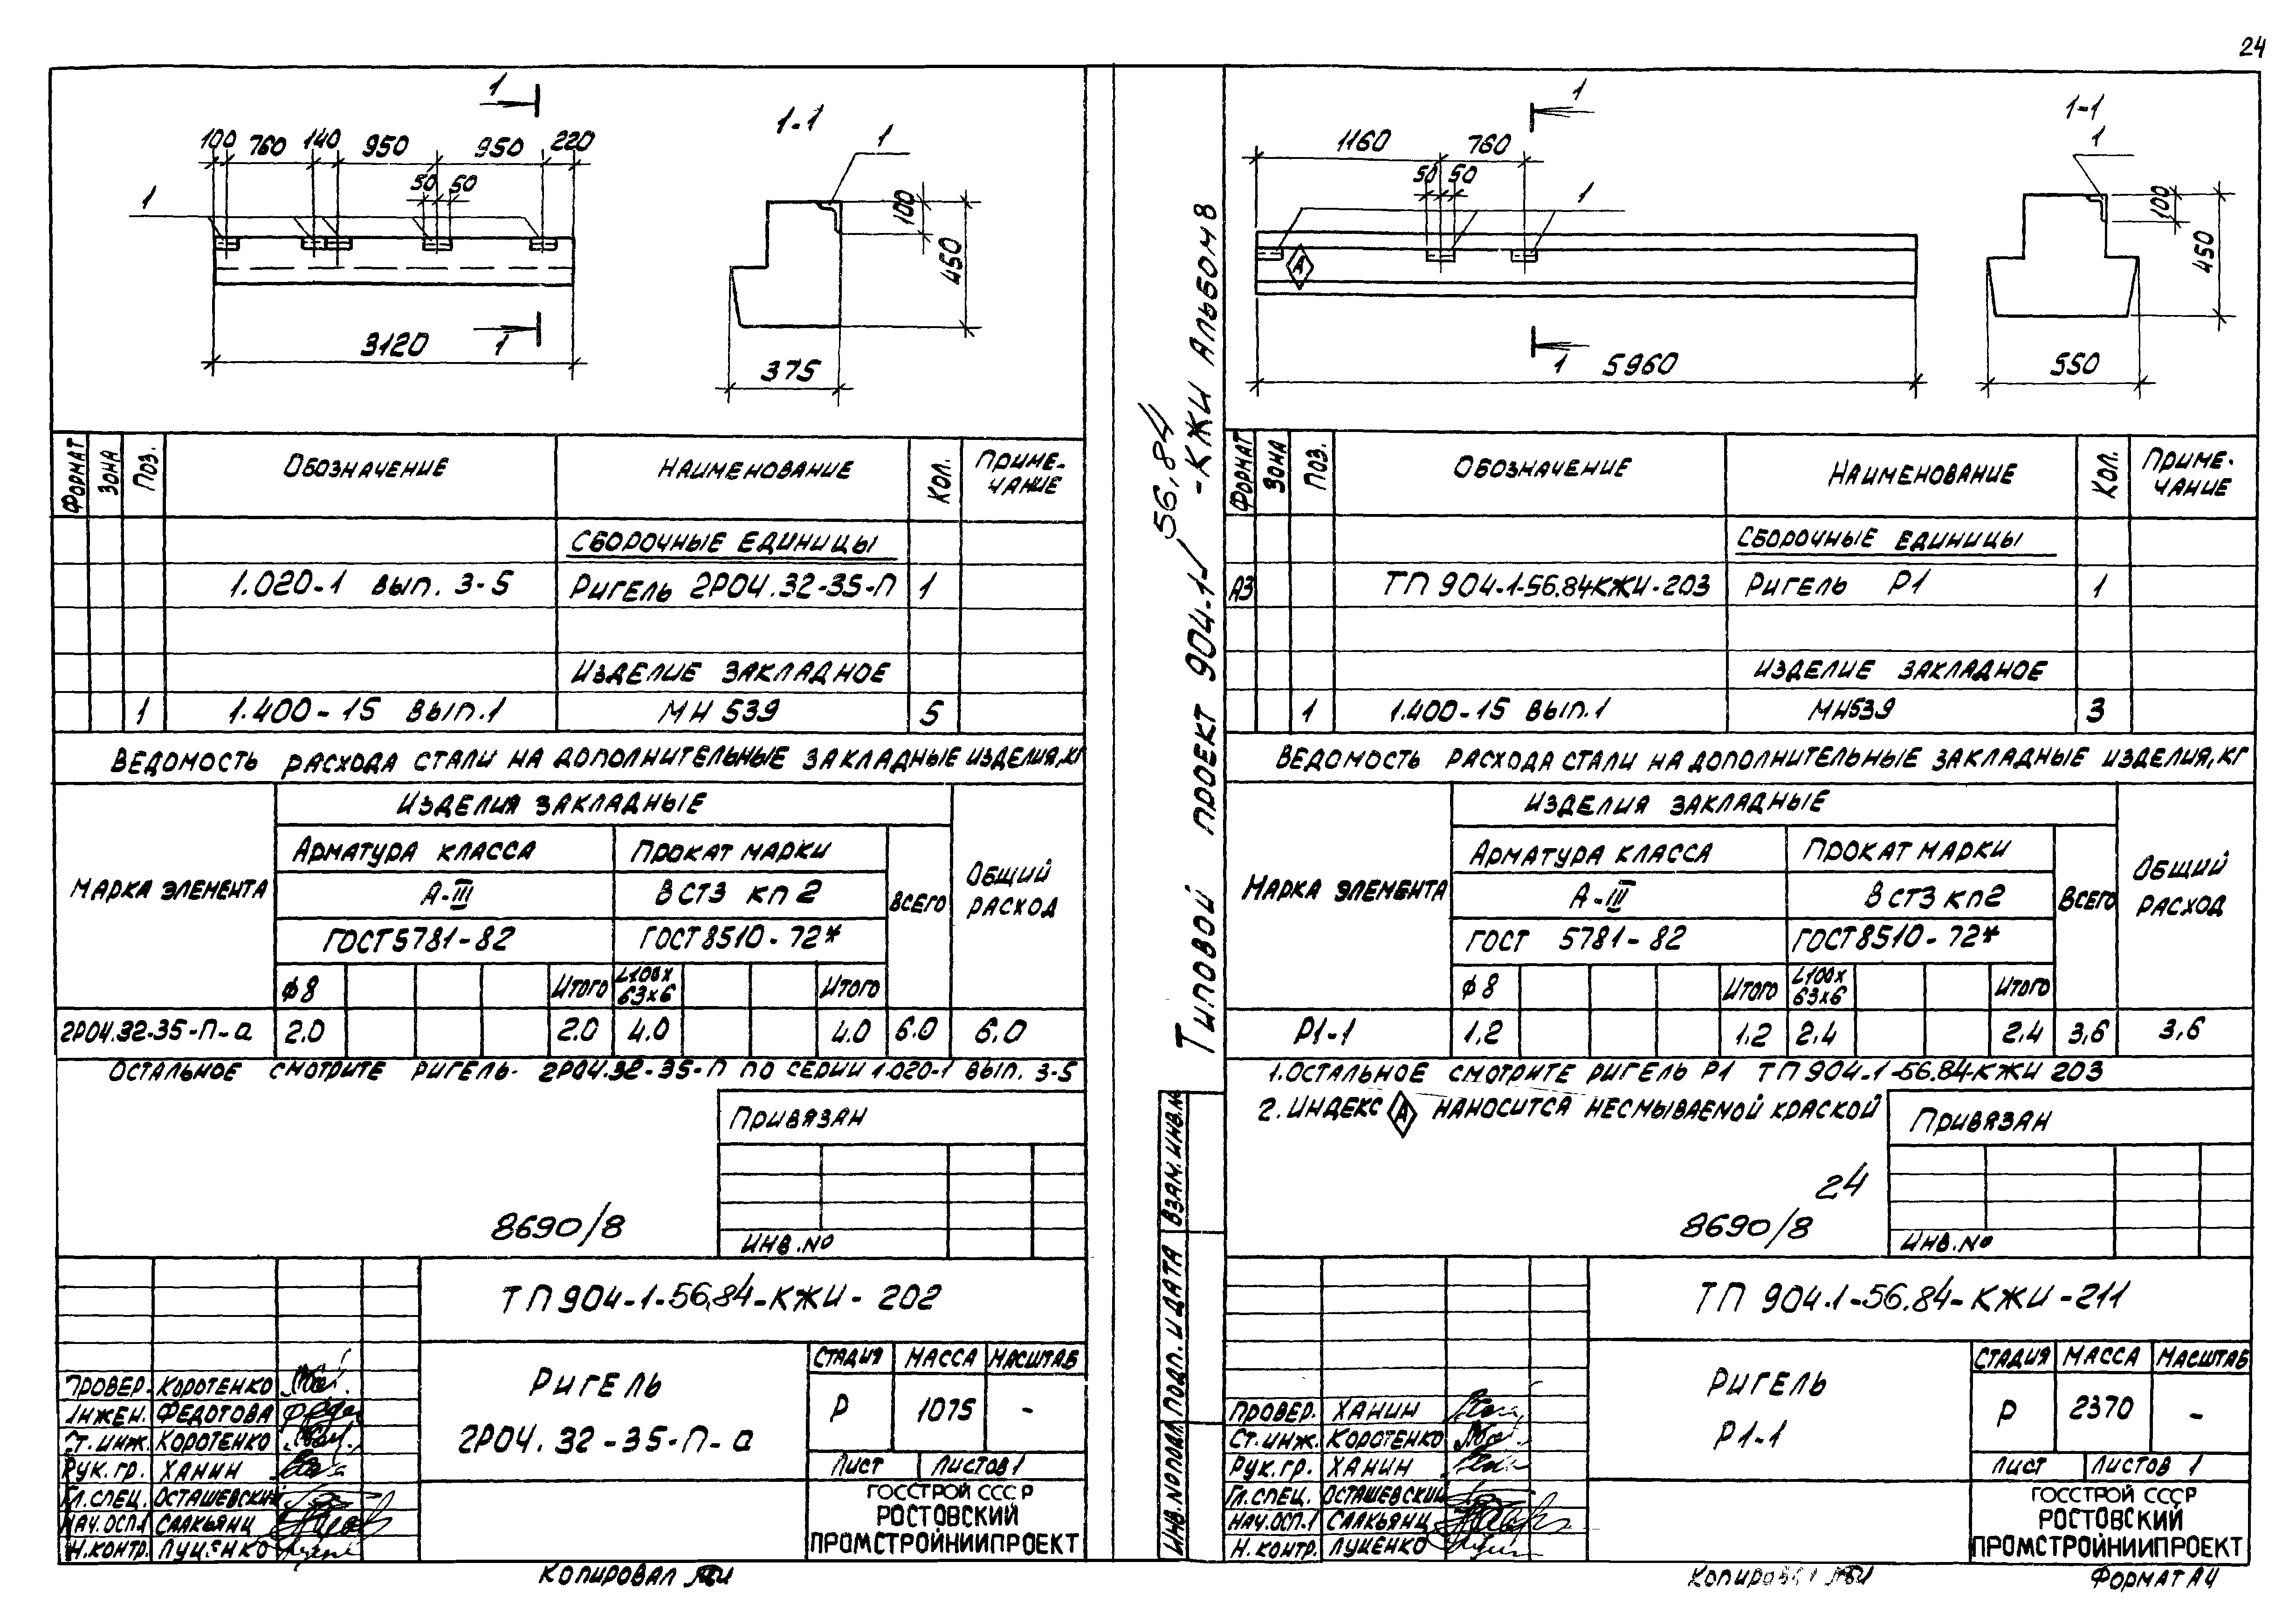 24
1
1-1
100 760 140 950 950 220
50 50
1
1
100
450
3120
1
375
ФОРМАТ ЗОНА ПОЗ. ОБОЗНАЧЕНИЕ НАИМЕНОВАНИЕ КОЛ. ПРИМЕ-ЧАНИЕ
СБОРОЧНЫЕ ЕДИНИЦЫ
1.020-1 ВЫП. 3-5 РИГЕЛЬ 2Р04.32-35-П 1
ИЗДЕЛИЕ ЗАКЛАДНОЕ
1 1.400-15 ВЫП.1 МН 539 5
ВЕДОМОСТЬ РАСХОДА СТАЛИ НА ДОПОЛНИТЕЛЬНЫЕ ЗАКЛАДНЫЕ ИЗДЕЛИЯ,КГ
МАРКА ЭЛЕМЕНТА
ИЗДЕЛИЯ ЗАКЛАДНЫЕ
АРМАТУРА КЛАССА ПРОКАТ МАРКИ
А-III ВСТ3 КП2
ВСЕГО
ОБЩИЙ РАСХОД
ГОСТ5781-82 ГОСТ8510-72*
ф8 ИТОГО L100х63х6 ИТОГО
2Р04.32-35-П-а 2.0 2.0 4.0 4.0 6.0 6.0
ОСТАЛЬНОЕ СМОТРИТЕ РИГЕЛЬ- 2Р04.32-35-П ПО СЕРИИ 1.020-1 ВЫП. 3-5
ПРИВЯЗАН
8690/8
ИНВ.NO
ТП 904-1-56.84-КЖИ-202
РИГЕЛЬ
2Р04.32-35-П-а
СТАДИЯ МАССА МАСШТАБ
Р 1075 -
ЛИСТ ЛИСТОВ 1
ГОССТРОЙ СССР
РОСТОВСКИЙ
ПРОМСТРОЙНИИПРОЕКТ
ПРОВЕР. КОРОТЕНКО
ИНЖЕН. ФЕДОТОВА
СТ.ИНЖ. КОРОТЕНКО
РУК.ГР. ХАНИН
ГЛ.СПЕЦ. ОСТАШЕВСКИЙ
НАЧ.ОСП.1 СААКЬЯНЦ
Н.КОНТР. ЛУЦЕНКО
КОПИРОВАЛ
ТИПОВОЙ ПРОЕКТ 904-1- 56.84 -КЖИ АЛЬБОМ 8
ВЗАМ.ИНВ.№
ПОДП. И ДАТА
ИНВ.NОПОДЛ
1
1-1
1160 760
50 50
1
1
А
100
450
1
5960
550
ФОРМАТ ЗОНА ПОЗ. ОБОЗНАЧЕНИЕ НАИМЕНОВАНИЕ КОЛ. ПРИМЕ-ЧАНИЕ
СБОРОЧНЫЕ ЕДИНИЦЫ
А3 ТП 904-1-56.84КЖИ-203 РИГЕЛЬ Р1 1
ИЗДЕЛИЕ ЗАКЛАДНОЕ
1 1.400-15 ВЫП.1 МН539 3
ВЕДОМОСТЬ РАСХОДА СТАЛИ НА ДОПОЛНИТЕЛЬНЫЕ ЗАКЛАДНЫЕ ИЗДЕЛИЯ,КГ
МАРКА ЭЛЕМЕНТА
ИЗДЕЛИЯ ЗАКЛАДНЫЕ
АРМАТУРА КЛАССА ПРОКАТ МАРКИ
А-III ВСТ3 КП2
ВСЕГО
ОБЩИЙ РАСХОД
ГОСТ 5781-82 ГОСТ8510-72*
ф8 ИТОГО L100х63х6 ИТОГО
Р1-1 1,2 1,2 2.4 2.4 3,6 3,6
1.ОСТАЛЬНОЕ СМОТРИТЕ РИГЕЛЬ Р1 ТП 904-1-56.84-КЖИ 203
2.ИНДЕКС А НАНОСИТСЯ НЕСМЫВАЕМОЙ КРАСКОЙ
ПРИВЯЗАН
24
8690/8
ИНВ.NO
ТП 904.1-56.84-КЖИ-211
РИГЕЛЬ
Р1-1
СТАДИЯ МАССА МАСШТАБ
Р 2370 -
ЛИСТ ЛИСТОВ 1
ГОССТРОЙ СССР
РОСТОВСКИЙ
ПРОМСТРОЙНИИПРОЕКТ
ПРОВЕР. ХАНИН
СТ.ИНЖ. КОРОТЕНКО
РУК.ГР. ХАНИН
ГЛ.СПЕЦ. ОСТАШЕВСКИЙ
НАЧ.ОСП.1 СААКЬЯНЦ
Н.КОНТР. ЛУЦЕНКО
ФОРМАТ А4